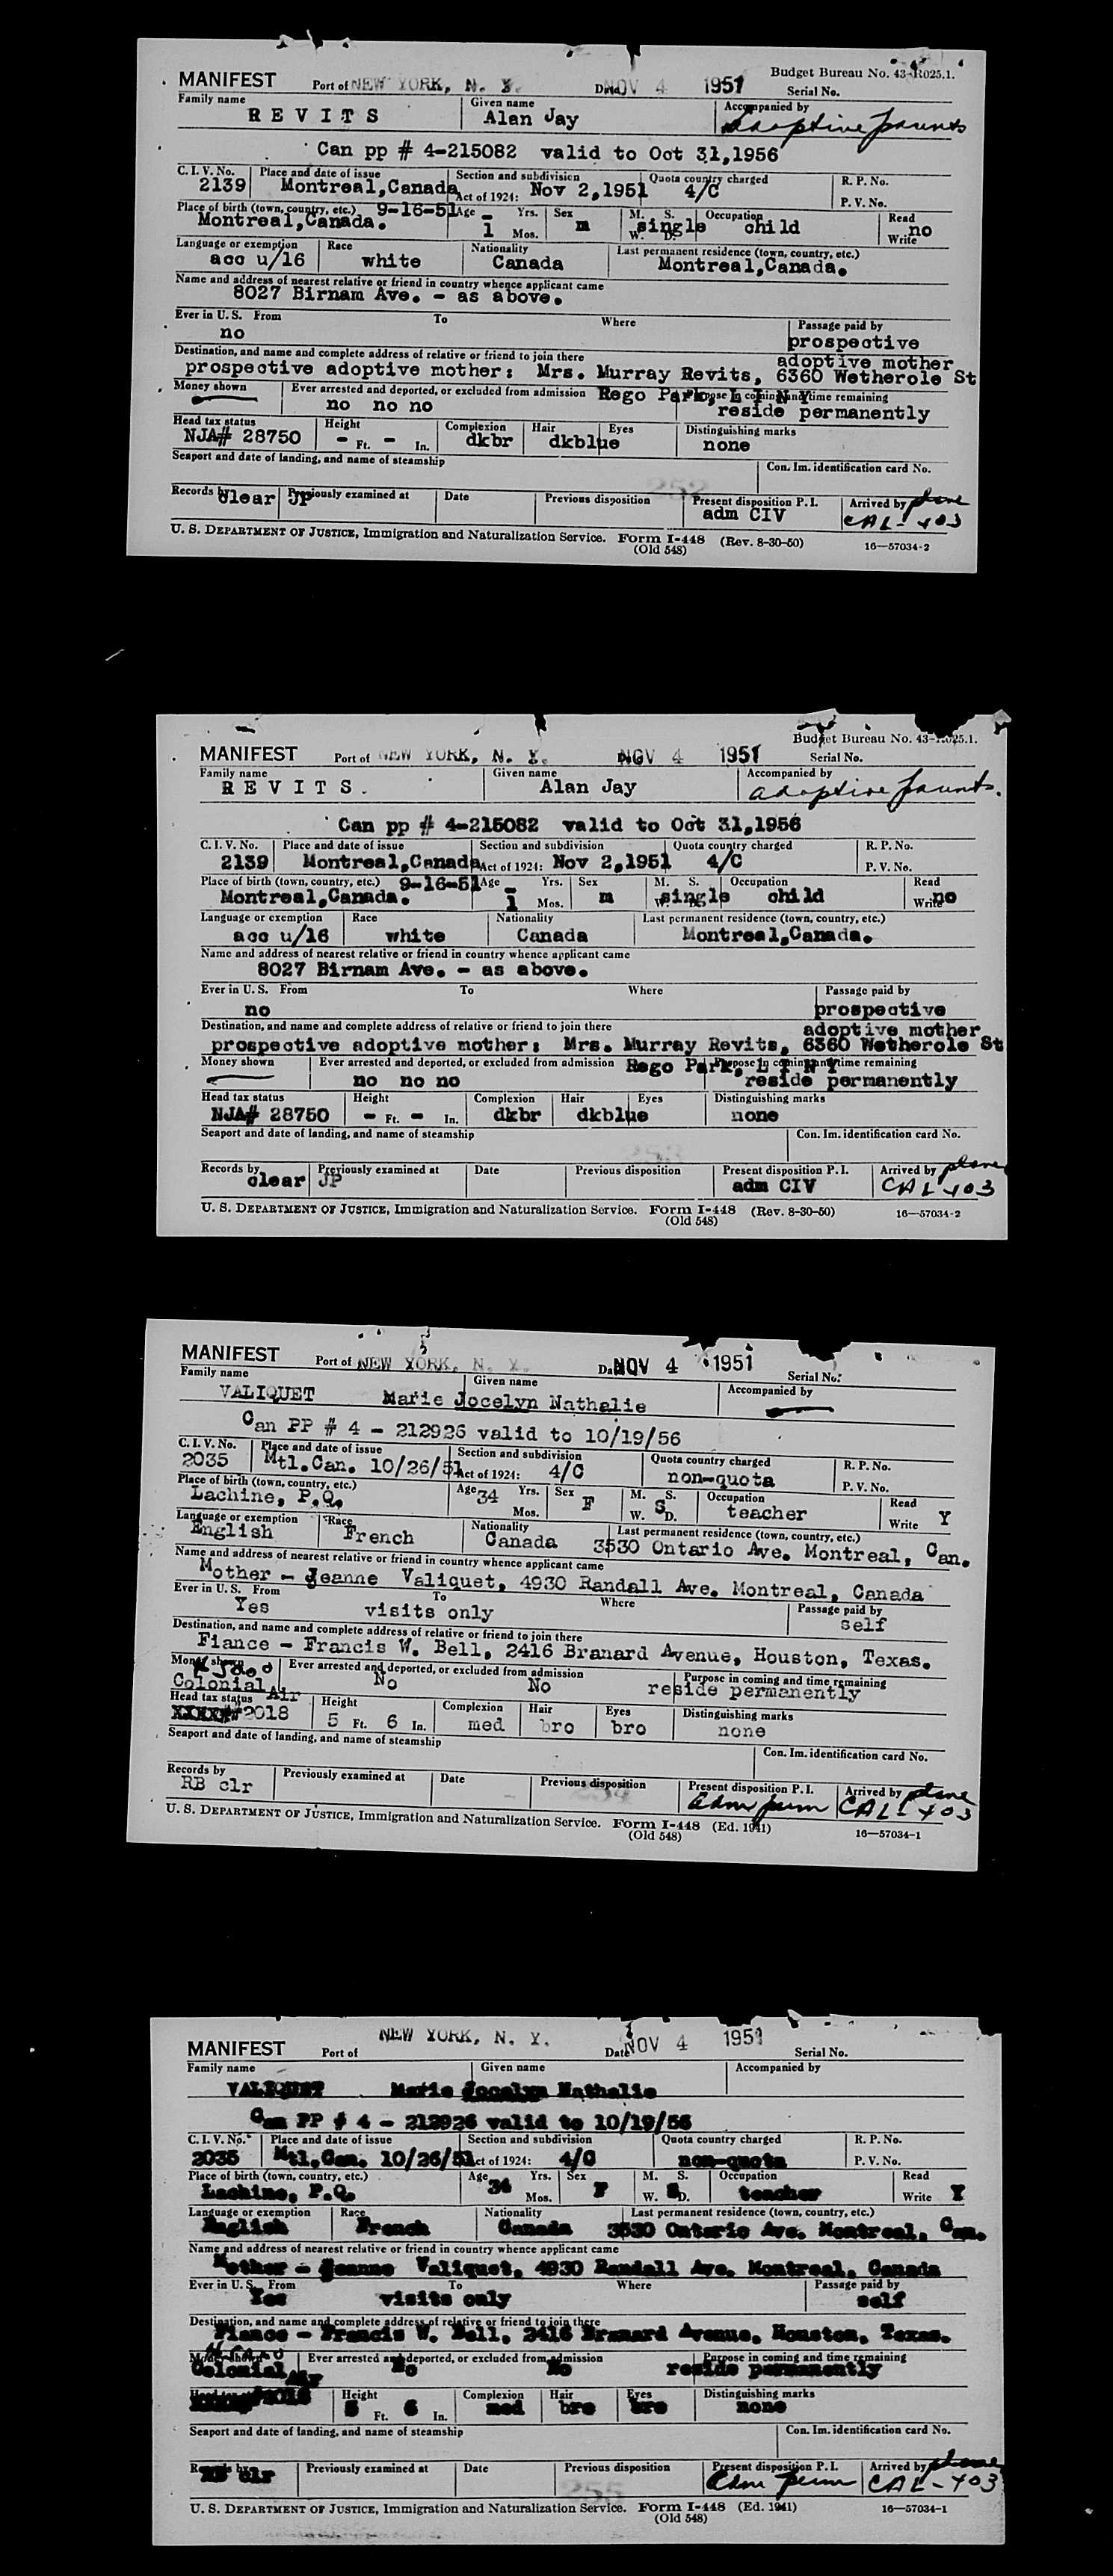 Budget Bureau No. 43-R025.1.
MANIFEST Port of NEW YORK, N. Y. Date NOV 4 1951 Serial No.
Family name Given name Accompanied by
REVITS Alan Jay adoptive parents
Can pp # 4-215082 valid to Oct 31,1956
C. I. V. No. Place and date of issue Section and subdivision Quota country charged R. P. No.
2139 Montreal,Canada Act of 1924: Nov 2,1951 4/C P. V. No.
Place of birth (town, country, etc.) 9-16-51 Age - Yrs. Sex M. S. Occupation Read
Montreal,Canada. 1 Mos. m W. D. single child Write no
Language or exemption Race Nationality Last permanent residence (town, country, etc.)
acc u/16 white Canada Montreal,Canada.
Name and address of nearest relative or friend in country whence applicant came
8027 Birnam Ave. - as above.
Ever in U. S. From To Where Passage paid by
no prospective
Destination, and name and complete address of relative or friend to join there adoptive mother
prospective adoptive mother: Mrs. Murray Revits, 6360 Wetherole St
Money shown Ever arrested and deported, or excluded from admission Rego Park, L I N Y Purpose in coming and time remaining
no no no reside permanently
Head tax status Height Complexion Hair Eyes Distinguishing marks
NJA# 28750 - Ft. - In. dkbr dkblue none
Seaport and date of landing, and name of steamship Con. Im. identification card No.
Records by Previously examined at Date Previous disposition Present disposition P. I. Arrived by plane
clear JP adm CIV CAL-403
U. S. DEPARTMENT OF JUSTICE, Immigration and Naturalization Service. Form I-448 (Rev. 8-30-50) 16—57034-2
(Old 548)
Budget Bureau No. 43-R025.1.
MANIFEST Port of NEW YORK, N. Y. NOV 4 1951 Serial No.
Family name Given name Accompanied by
REVITS. Alan Jay adoptive parents.
Can pp # 4-215082 valid to Oct 31,1956
C. I. V. No. Place and date of issue Section and subdivision Quota country charged R. P. No.
2139 Montreal,Canada Act of 1924: Nov 2,1951 4/C P. V. No.
Place of birth (town, country, etc.) 9-16-51 Age - Yrs. Sex M. S. Occupation Read
Montreal,Canada. 1 Mos. m W. D. single child Write no
Language or exemption Race Nationality Last permanent residence (town, country, etc.)
acc u/16 white Canada Montreal,Canada.
Name and address of nearest relative or friend in country whence applicant came
8027 Birnam Ave. - as above.
Ever in U. S. From To Where Passage paid by
no prospective
Destination, and name and complete address of relative or friend to join there adoptive mother
prospective adoptive mother: Mrs. Murray Revits, 6360 Wetherole St
Money shown Ever arrested and deported, or excluded from admission Rego Park, L I N Y Purpose in coming and time remaining
no no no reside permanently
Head tax status Height Complexion Hair Eyes Distinguishing marks
NJA# 28750 - Ft. - In. dkbr dkblue none
Seaport and date of landing, and name of steamship Con. Im. identification card No.
Records by Previously examined at Date Previous disposition Present disposition P. I. Arrived by plane
clear JP adm CIV CAL-403
U. S. DEPARTMENT OF JUSTICE, Immigration and Naturalization Service. Form I-448 (Rev. 8-30-50) 16—57034-2
(Old 548)
MANIFEST Port of NEW YORK, N. Y. Date NOV 4 1951 Serial No.
Family name Given name Accompanied by
VALIQUET Marie Jocelyn Nathalie
Can PP # 4 - 212926 valid to 10/19/56
C. I. V. No. Place and date of issue Section and subdivision Quota country charged R. P. No.
2035 Mtl.Can. 10/26/51 Act of 1924: 4/C non-quota P. V. No.
Place of birth (town, country, etc.) Age 34 Yrs. Sex M. S. Occupation Read
Lachine, P.Q. Mos. F W. S D. teacher Write Y
Language or exemption Race Nationality Last permanent residence (town, country, etc.)
English French Canada 3530 Ontario Ave. Montreal, Can.
Name and address of nearest relative or friend in country whence applicant came
Mother - Jeanne Valiquet, 4930 Randall Ave. Montreal, Canada
Ever in U. S. From To Where Passage paid by
Yes visits only self
Destination, and name and complete address of relative or friend to join there
Fiance - Francis W. Bell, 2416 Branard Avenue, Houston, Texas.
Money shown Ever arrested and deported, or excluded from admission Purpose in coming and time remaining
Colonial Air No No reside permanently
Head tax status Height Complexion Hair Eyes Distinguishing marks
XXXX#2018 5 Ft. 6 In. med bro bro none
Seaport and date of landing, and name of steamship Con. Im. identification card No.
Records by Previously examined at Date Previous disposition Present disposition P. I. Arrived by plane
RB clr adm perm CAL-403
U. S. DEPARTMENT OF JUSTICE, Immigration and Naturalization Service. Form I-448 (Ed. 1941) 16—57034-1
(Old 548)
MANIFEST Port of NEW YORK, N. Y. Date NOV 4 1951 Serial No.
Family name Given name Accompanied by
VALIQUET Marie Jocelyn Nathalie
Can PP # 4 - 212926 valid to 10/19/56
C. I. V. No. Place and date of issue Section and subdivision Quota country charged R. P. No.
2035 Mtl.Can. 10/26/51 Act of 1924: 4/C non-quota P. V. No.
Place of birth (town, country, etc.) Age 34 Yrs. Sex M. S. Occupation Read
Lachine, P.Q. Mos. F W. S D. teacher Write Y
Language or exemption Race Nationality Last permanent residence (town, country, etc.)
English French Canada 3530 Ontario Ave. Montreal, Can.
Name and address of nearest relative or friend in country whence applicant came
Mother - Jeanne Valiquet, 4930 Randall Ave. Montreal, Canada
Ever in U. S. From To Where Passage paid by
Yes visits only self
Destination, and name and complete address of relative or friend to join there
Fiance - Francis W. Bell, 2416 Branard Avenue, Houston, Texas.
Money shown Ever arrested and deported, or excluded from admission Purpose in coming and time remaining
Colonial No No reside permanently
Head tax status Height Complexion Hair Eyes Distinguishing marks
5 Ft. 6 In. med bro bro none
Seaport and date of landing, and name of steamship Con. Im. identification card No.
Records by Previously examined at Date Previous disposition Present disposition P. I. Arrived by plane
RB clr adm perm CAL-403
U. S. DEPARTMENT OF JUSTICE, Immigration and Naturalization Service. Form I-448 (Ed. 1941) 16—57034-1
(Old 548)